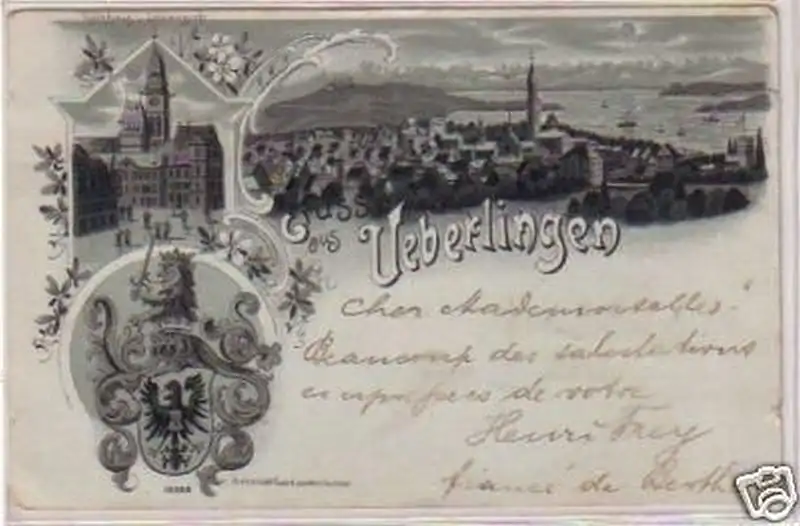 Gruss
aus
Ueberlingen
Cher Mademoiselles!
Beaucoup des salutations
de votre
Henri Frey
fiancé de Berth